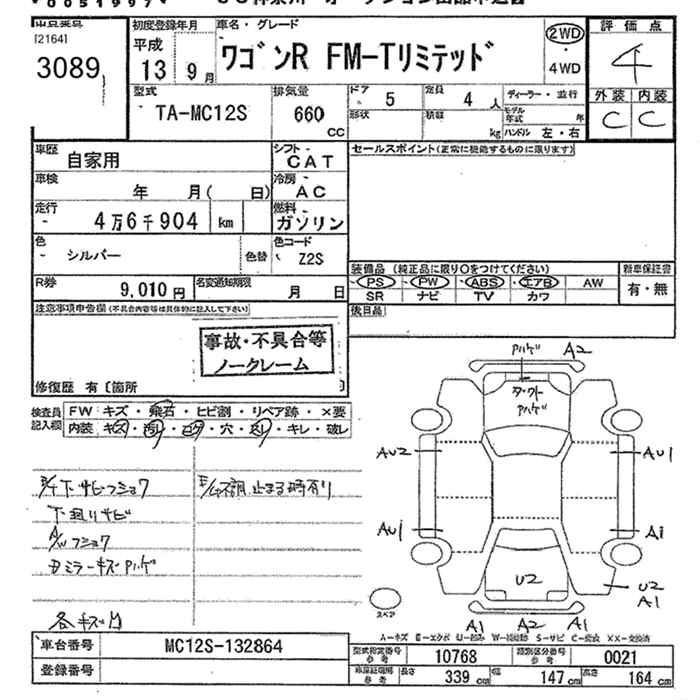 0051997
[2164]
3089
初度登録年月
平成
13 9月
車名・グレード
ワゴンR FM-Tリミテッド
2WD
4WD
評価点
4
外装 内装
C C
型式
TA-MC12S
排気量
660
CC
ドア 5
定員 4人
ディーラー・並行
形状
積載 kg
モデル年式 年
ハンドル 左・右
車歴
自家用
シフト
CAT
セールスポイント(正常に機能するものに限ります)
車検
年 月( 日)
冷房
AC
走行
4万6千904 km
燃料
ガソリン
色
シルバー
色替
色コード
Z2S
装備品 (純正品に限り○をつけてください)
新車保証書
PS PW ABS エアB AW
SR ナビ TV カワ
有・無
R券
9,010円
名変通知期限
月 日
注意事項申告欄(不具合内容等は具体的に記入して下さい)
後日品
事故・不具合等
ノークレーム
修復歴 有〔箇所 〕
検査員
記入欄
FW キズ・飛石・ヒビ割・リペア跡・×要
内装 キズ・汚れ・コゲ・穴・スレ・キレ・破レ
下廻りサビ
A/Wフショク
各キズ凹
ハゲ A2
ダクト
ハゲ
AU2
AU1
AU1
A1
U2
U2
A1
A1 A2 A1
スペア
A-キズ E-エクボ U-凹み W-補修跡 S-サビ C-腐食 XX-交換済
車台番号
MC12S-132864
型式指定番号
参考
10768
類別区分番号
参考
0021
登録番号
車庫証明用
参考
長さ
339 cm
幅
147 cm
高さ
164 cm